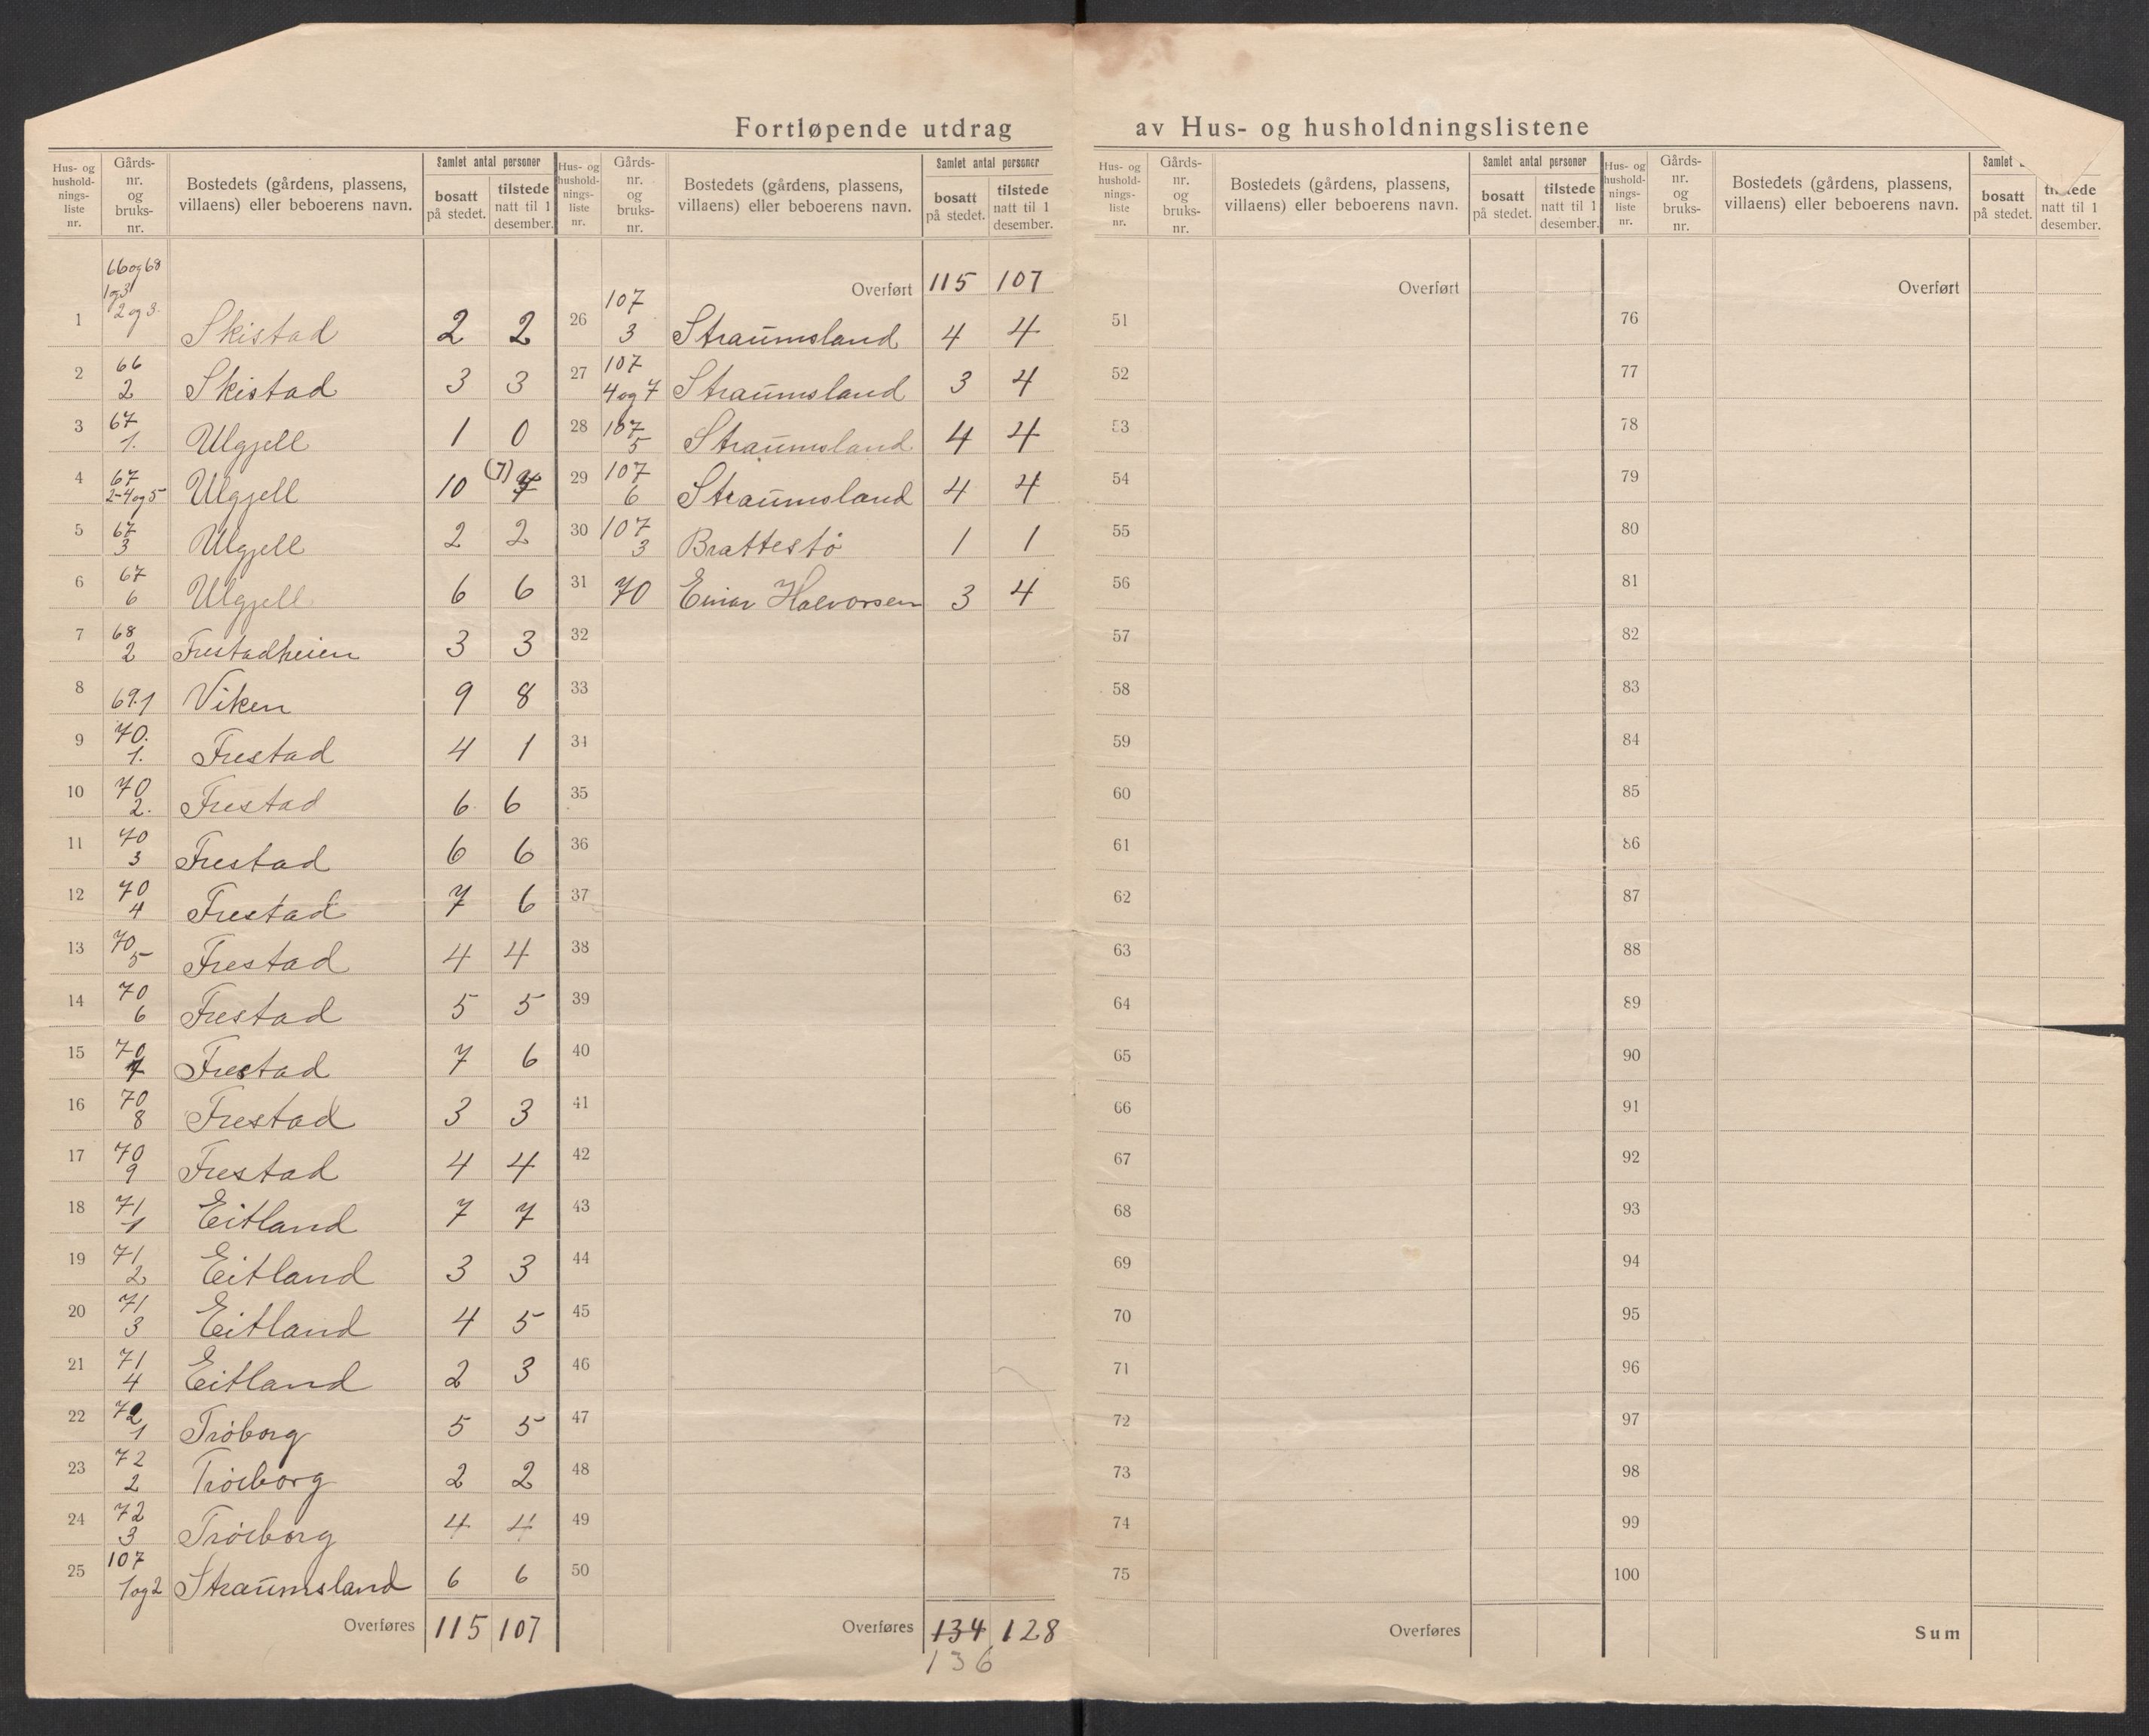 Fortløpende utdrag av Hus- og husholdningslistene
Hus- og hushold-nings-liste nr. | Gårds-nr. og bruks-nr. | Bostedets (gårdens, plassens, villaens) eller beboerens navn. | Samlet antal personer | bosatt på stedet. | tilstede natt til 1 desember.
66 og 68
1 og 3
2 og 3.
1 Skistad 2 2
2 66 2 Skistad 3 3
3 67 1. Ulgjell 1 0
4 67 2-4 og 5 Ulgjell 10 (7) 7
5 67 3 Ulgjell 2 2
6 67 6 Ulgjell 6 6
7 68 2 Frestadheien 3 3
8 69.1 Viken 9 8
9 70. 1. Frestad 4 1
10 70 2. Frestad 6 6
11 70 3 Frestad 6 6
12 70 4 Frestad 7 6
13 70 5 Frestad 4 4
14 70 6 Frestad 5 5
15 70 7 Frestad 7 6
16 70 8 Frestad 3 3
17 70 9 Frestad 4 4
18 71 1 Eitland 7 7
19 71 2 Eitland 3 3
20 71 3 Eitland 4 5
21 71 4 Eitland 2 3
22 72 1 Tröborg 5 5
23 72 2 Tröiborg 2 2
24 72 3 Tröiborg 4 4
25 107 1 og 2 Straumsland 6 6
Overføres 115 107
Hus- og hushold-nings-liste nr. | Gårds-nr. og bruks-nr. | Bostedets (gårdens, plassens, villaens) eller beboerens navn. | Samlet antal personer | bosatt på stedet. | tilstede natt til 1 desember.
Overført 115 107
26 107 3 Straumsland 4 4
27 107 4 og 7 Straumsland 3 4
28 107 5 Straumsland 4 4
29 107 6 Straumsland 4 4
30 107 3 Brattestö 1 1
31 70 Einar Halvorsen 3 4
32
33
34
35
36
37
38
39
40
41
42
43
44
45
46
47
48
49
50
Overføres 134 128
136
Hus- og hushold-nings-liste nr. | Gårds-nr. og bruks-nr. | Bostedets (gårdens, plassens, villaens) eller beboerens navn. | Samlet antal personer | bosatt på stedet. | tilstede natt til 1 desember.
Overført
51
52
53
54
55
56
57
58
59
60
61
62
63
64
65
66
67
68
69
70
71
72
73
74
75
Overføres
Hus- og hushold-nings-liste nr. | Gårds-nr. og bruks-nr. | Bostedets (gårdens, plassens, villaens) eller beboerens navn. | Samlet | bosatt på stedet. | tilstede natt til 1 desember.
Overført
76
77
78
79
80
81
82
83
84
85
86
87
88
89
90
91
92
93
94
95
96
97
98
99
100
Sum